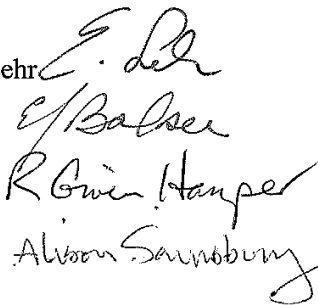 ehr E. Lehr
EJ Balser
R Given Harper
Alison Sainsbury